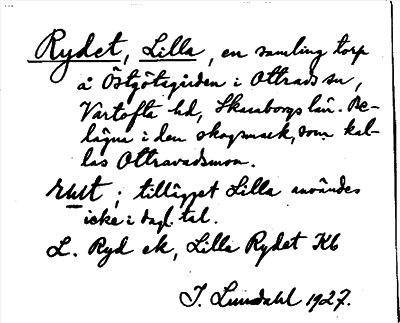 Rydet, Lilla, en samling torp
å Östgötagården i Ottravads sn,
Vartofta hd, Skaraborgs län. Be-
lägna i den skogsmark, som kal-
las Ottravadsmon.
; tillägget Lilla användes
icke i dagl. tal.
L. Ryd ek, Lilla Rydet Kb
J. Lundahl 1927.